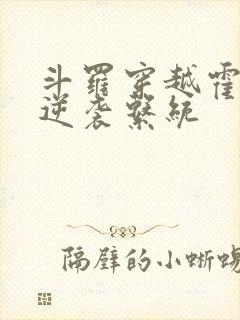 斗羅穿越霍
逆袭繫統
隔壁的小蜥蜴